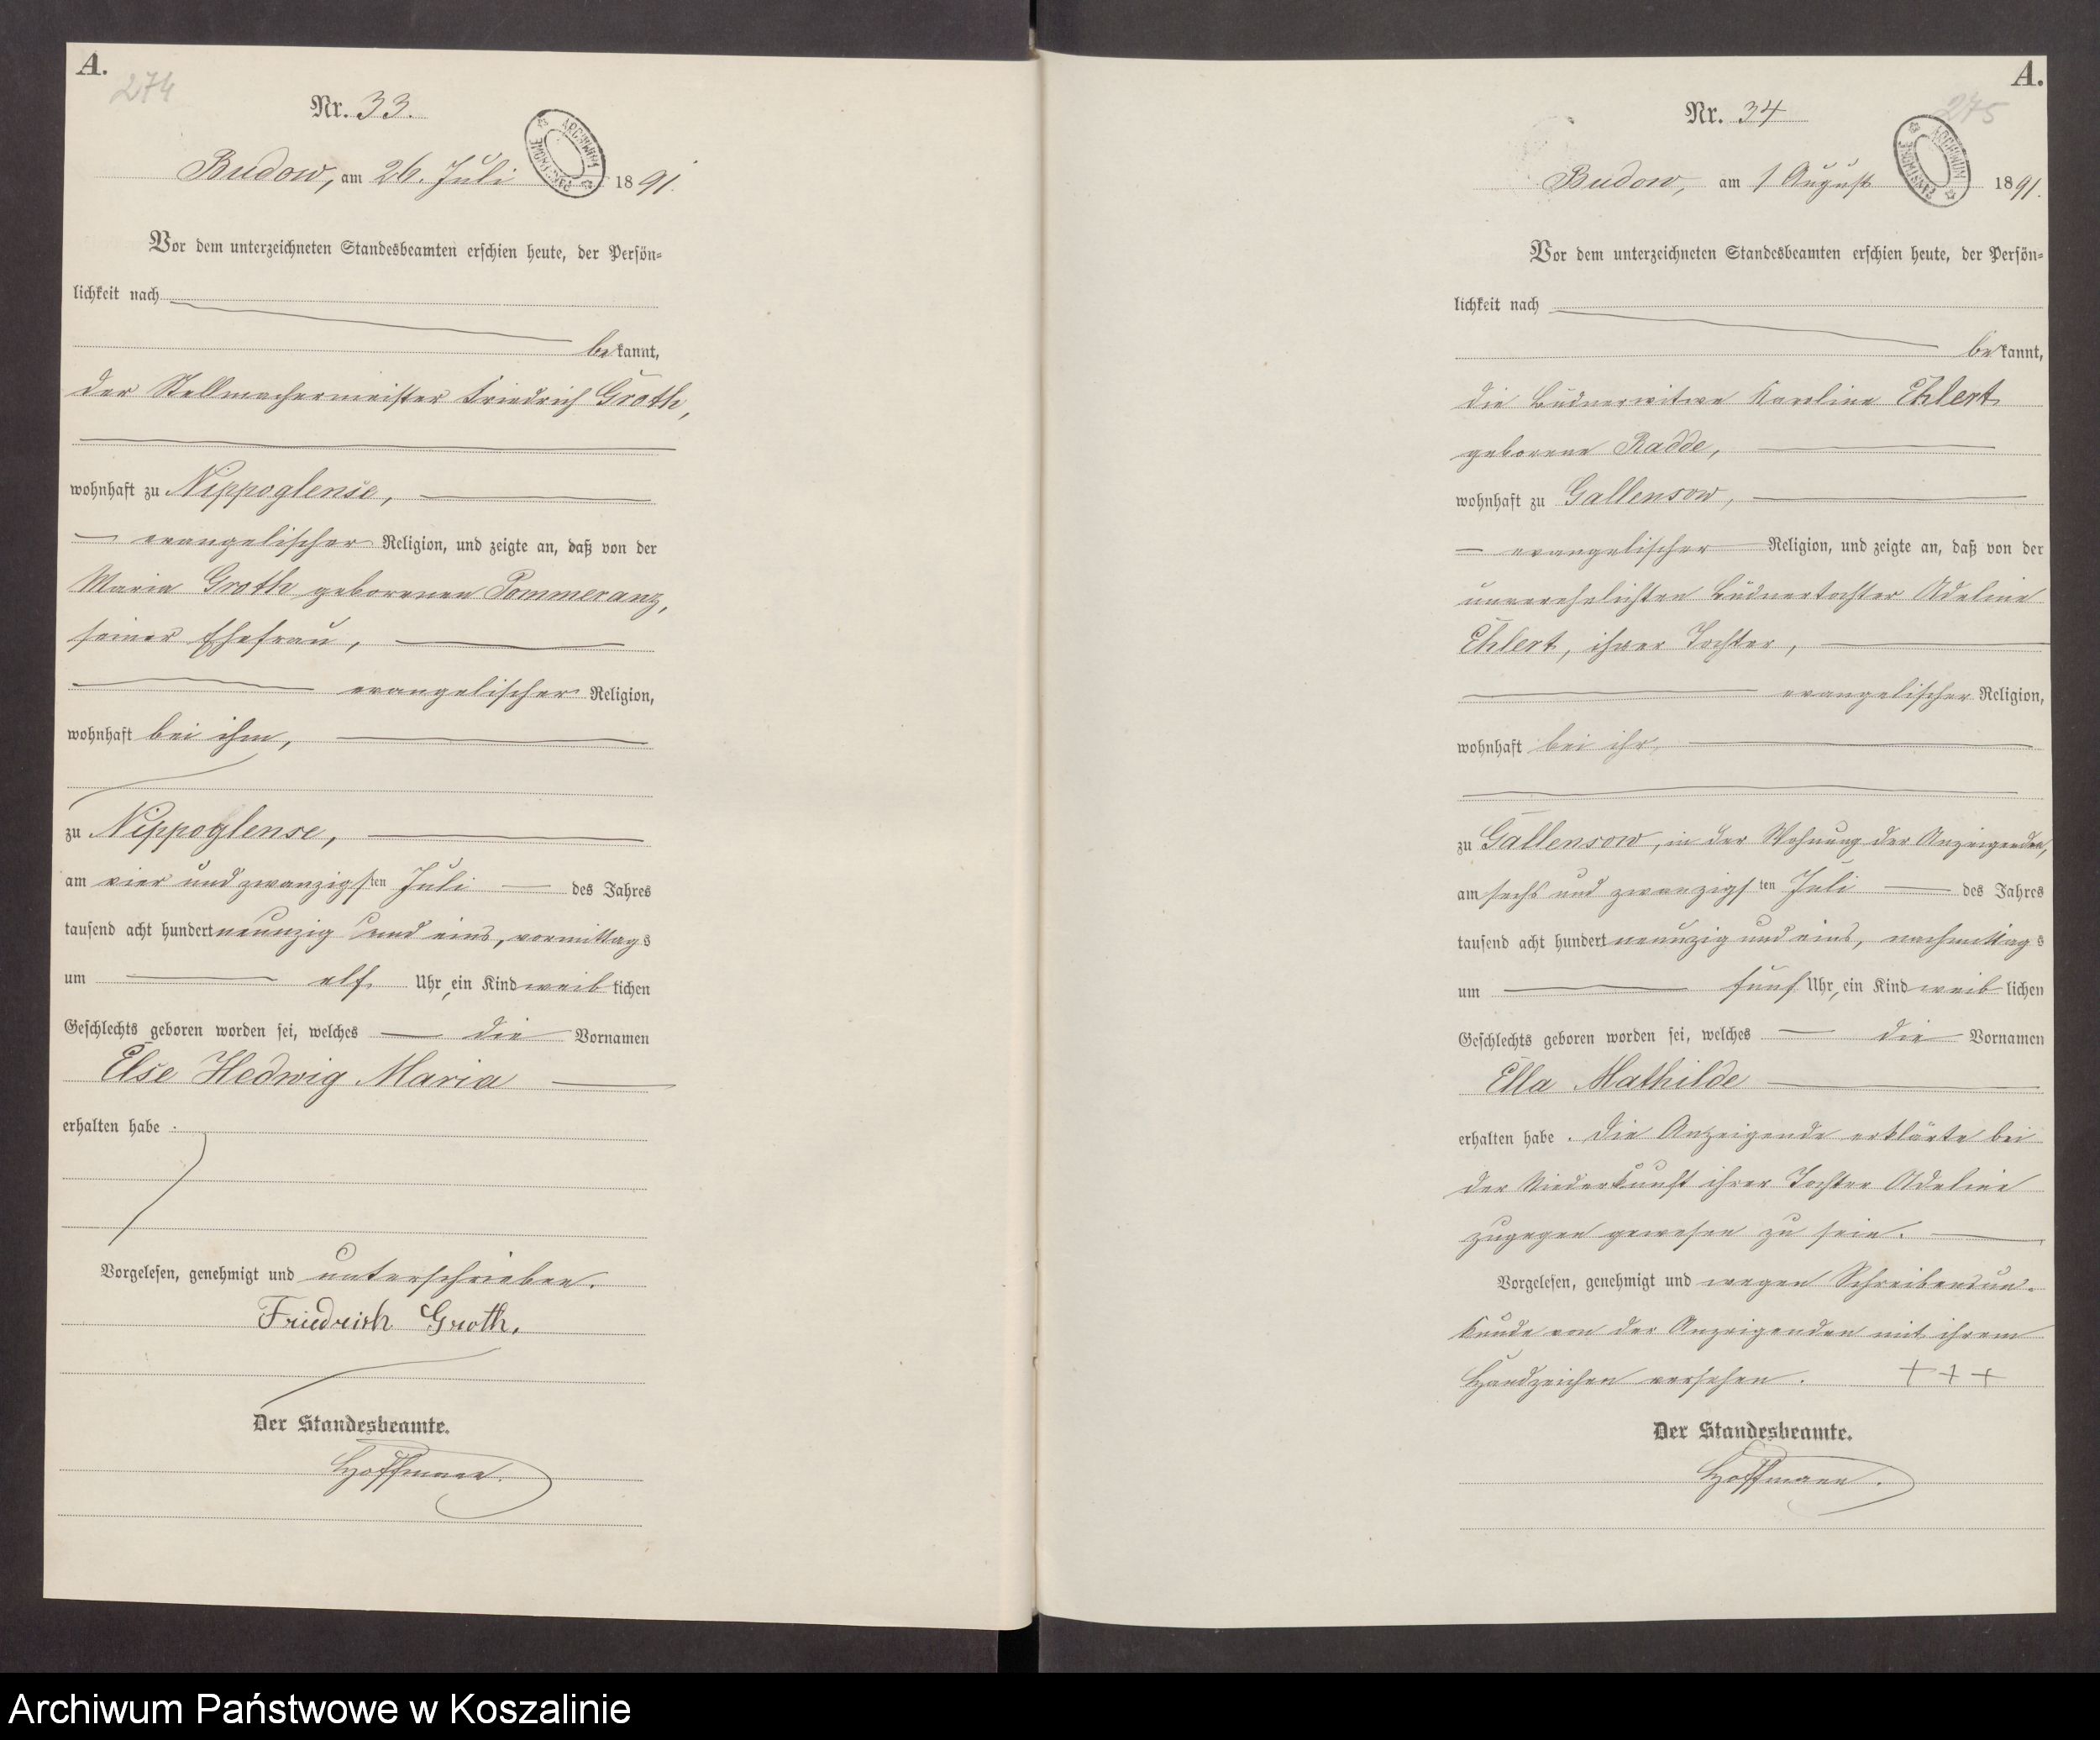 A.
274
Nr. 33.
Budow, am 26. Juli 1891.
ARCHIWUM PAŃSTWOWE
Vor dem unterzeichneten Standesbeamten erschien heute, der Persön-
lichkeit nach
bekannt,
der Stellmachermeister Friedrich Groth,
wohnhaft zu Nippoglense,
evangelischer Religion, und zeigte an, daß von der
Maria Groth geborenen Pommeranz,
seiner Ehefrau,
evangelischer Religion,
wohnhaft bei ihm,
zu Nippoglense,
am vier und zwanzigsten Juli des Jahres
tausend acht hundert neunzig und eins, vormittags
um elf Uhr, ein Kind weiblichen
Geschlechts geboren worden sei, welches die Vornamen
Else Hedwig Maria
erhalten habe.
Vorgelesen, genehmigt und unterschrieben.
Friedrich Groth.
Der Standesbeamte.
Hoffmann.
A.
275
Nr. 34
Budow, am 1 August 1891.
ARCHIWUM PAŃSTWOWE
Vor dem unterzeichneten Standesbeamten erschien heute, der Persön-
lichkeit nach
bekannt,
die Büdnerwitwe Karoline Ehlert
geborene Radde,
wohnhaft zu Gallensow,
evangelischer Religion, und zeigte an, daß von der
unverehelichten Büdnertochter Adeline
Ehlert, ihrer Tochter,
evangelischer Religion,
wohnhaft bei ihr,
zu Gallensow, in der Wohnung der Anzeigenden,
am sechs und zwanzigsten Juli des Jahres
tausend acht hundert neunzig und eins, nachmittags
um fünf Uhr, ein Kind weiblichen
Geschlechts geboren worden sei, welches die Vornamen
Ella Mathilde
erhalten habe. Die Anzeigende erklärte bei
der Niederkunft ihrer Tochter Adeline
zugegen gewesen zu sein.
Vorgelesen, genehmigt und wegen Schreibensun-
kunde von der Anzeigenden mit ihrem
Handzeichen versehen. + + +
Der Standesbeamte.
Hoffmann.
Archiwum Państwowe w Koszalinie